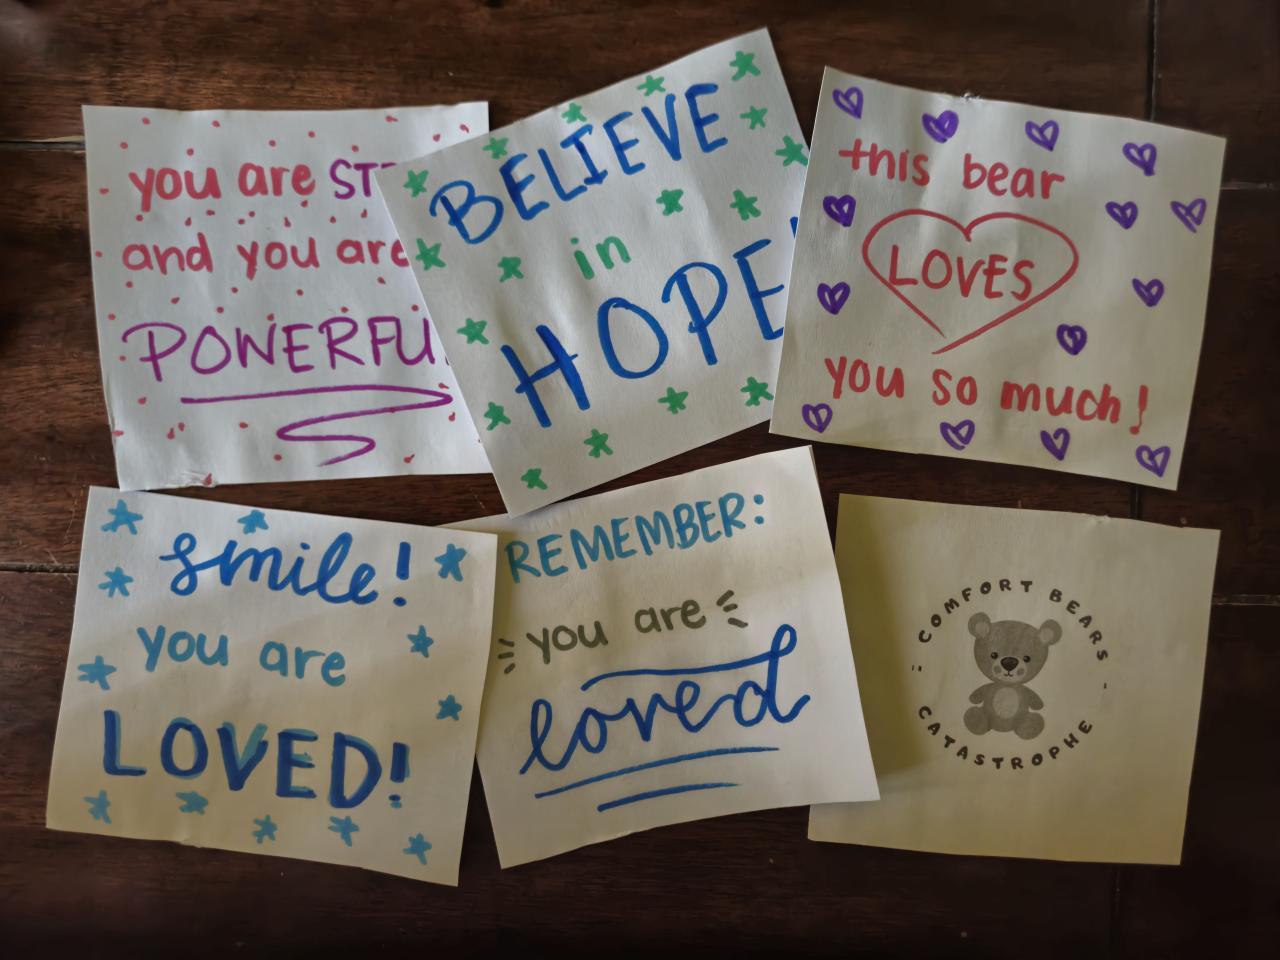 you are
and you are
POWERFU
BELIEVE
in
HOPE
this bear
LOVES
you so much!
smile!
you are
LOVED!
REMEMBER:
you are
loved
COMFORT BEARS
CATASTROPHE